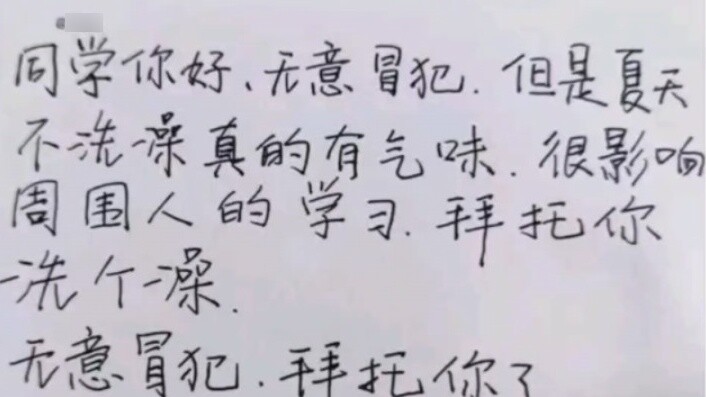 同学你好、无意冒犯.但是夏天
不洗澡真的有气味.很影响
周围人的学习.拜托你
洗个澡.
无意冒犯.拜托你了